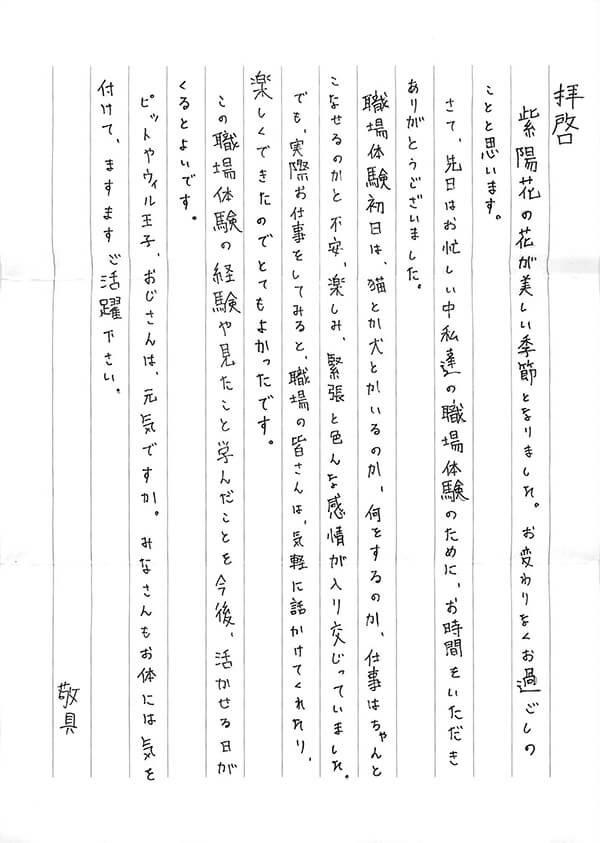 拝啓
紫陽花の花が美しい季節となりました。お変わりなくお過ごしの
ことと思います。
さて、先日はお忙しい中私達の職場体験のために、お時間をいただき
ありがとうございました。
職場体験初日は、猫とか犬とかいるのか、何をするのか、仕事はちゃんと
こなせるのかと不安、楽しみ、緊張と色んな感情が入り交じっていました。
でも、実際お仕事をしてみると、職場の皆さんは、気軽に話かけてくれたり、
楽しくできたのでとてもよかったです。
この職場体験の経験や見たこと学んだことを今後、活かせる日が
くるとよいです。
ピットやウィル王子、おじさんは、元気ですか。みなさんもお体には気を
付けて、ますますご活躍下さい。
敬具